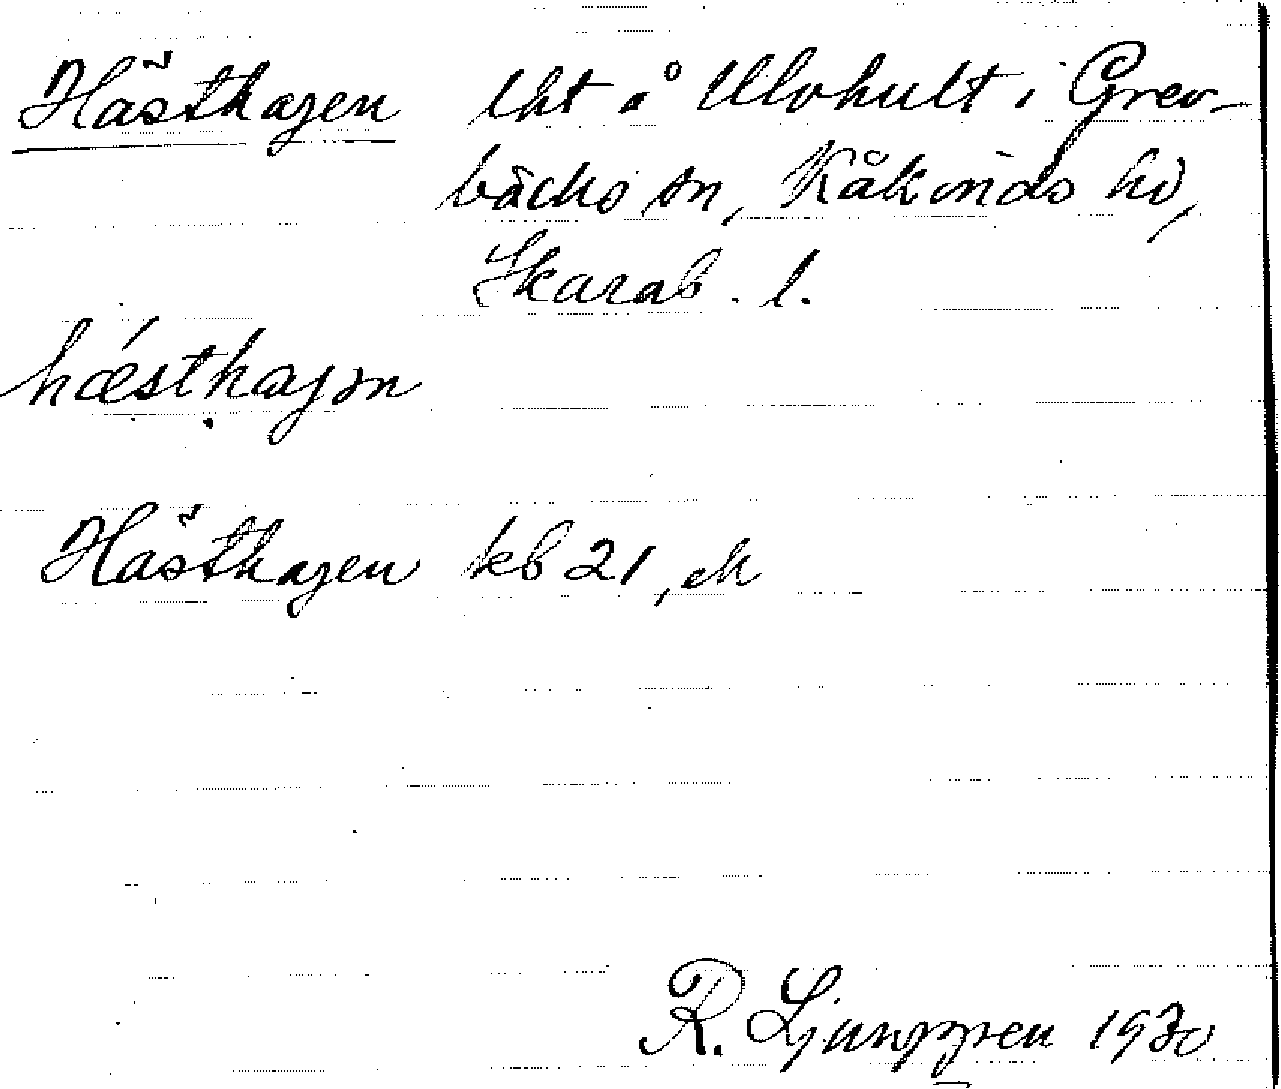 Hästhagen lht å Ulvhult i Grev-
bäcks sn, Kåkinds hd,
Skarab. l.
hǽsthagən
Hästhagen kb 21, ek
R. Ljunggren 1930